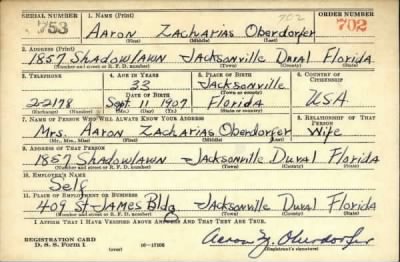 SERIAL NUMBER 1. NAME (Print) 702 ORDER NUMBER
753 Aaron Zacharias Oberdorfer 702
(First) (Middle) (Last)
2. ADDRESS (Print)
1857 Shadowlawn Jacksonville Duval Florida
(Number and street or R. F. D. number) (Town) (County) (State)
3. TELEPHONE 4. AGE IN YEARS 5. PLACE OF BIRTH 6. COUNTRY OF CITIZENSHIP
33 Jacksonville
2-2178 Sept. 11 1907 Florida USA
(Exchange) (Number) (Mo.) (Day) (Yr.) (State or country)
7. NAME OF PERSON WHO WILL ALWAYS KNOW YOUR ADDRESS 8. RELATIONSHIP OF THAT PERSON
Mrs. Aaron Zacharias Oberdorfer Wife
(Mr., Mrs., Miss) (First) (Middle) (Last)
9. ADDRESS OF THAT PERSON
1857 Shadowlawn Jacksonville Duval Florida
(Number and street or R. F. D. number) (Town) (County) (State)
10. EMPLOYER'S NAME
Self
11. PLACE OF EMPLOYMENT OR BUSINESS
409 St James Bldg Jacksonville Duval Florida
(Number and street or R. F. D. number) (Town) (County) (State)
I AFFIRM THAT I HAVE VERIFIED ABOVE ANSWERS AND THAT THEY ARE TRUE.
REGISTRATION CARD Aaron Z. Oberdorfer
D. S. S. FORM 1 (over) (Registrant's signature)